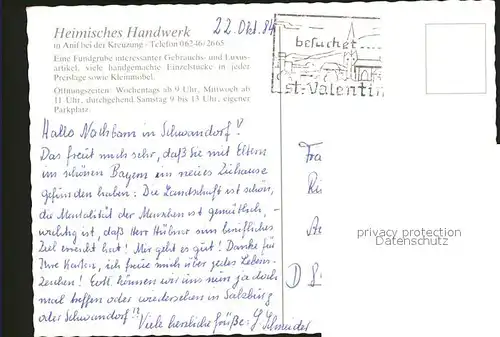 Heimisches Handwerk
in Anif bei der Kreuzung · Telefon 06246/2665
Eine Fundgrube interessanter Gebrauchs- und Luxus-
artikel, viele handgemachte Einzelstücke in jeder
Preislage sowie Kleinmöbel.
Öffnungszeiten: Wochentags ab 9 Uhr, Mittwoch ab
11 Uhr, durchgehend Samstag 9 bis 13 Uhr, eigener
Parkplatz.
22. Okt. 84
besuchet....
st. Valentin
Hallo Nachbarn in Schwandorf!
Das freut mich sehr, daß Sie mit Eltern
im schönen Bayern ein neues Zuhause
gefunden haben. Die Landschaft ist schön,
die Mentalität der Menschen ist gemütlich, -
wichtig ist, daß Herr Hübner sein berufliches
Ziel erreicht hat! Mir geht es gut! Danke für
Ihre Karten, ich freue mich über jedes Lebens-
zeichen! Evtl. können wir uns nun ja doch
mal treffen oder wiedersehen in Salzburg
oder Schwandorf!?
Viele herzliche Grüße: Schneider
Fra
D
privacy protection
Datenschutz